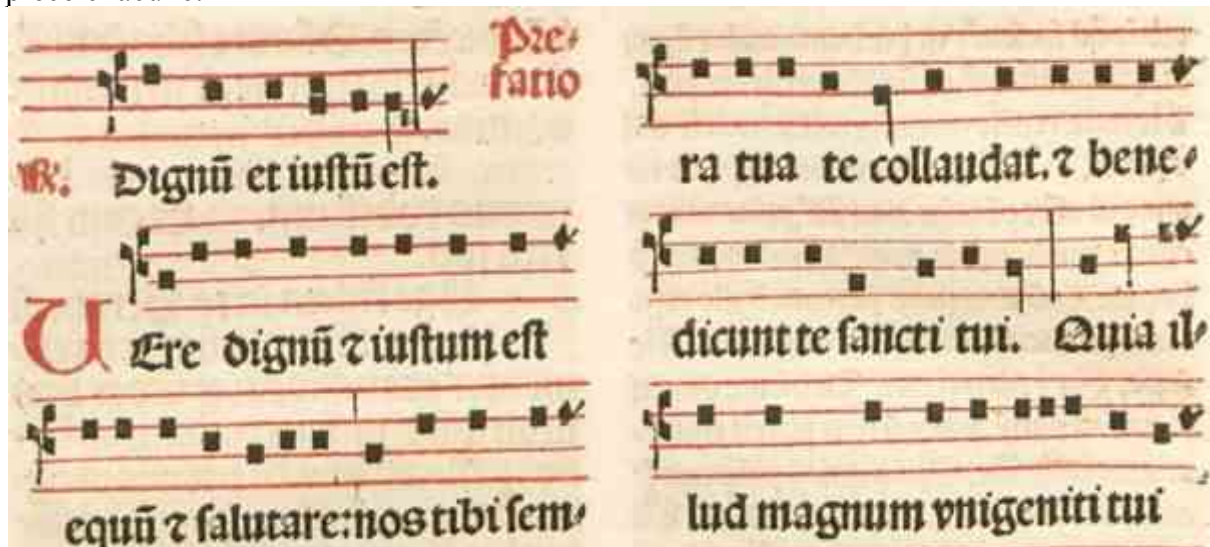 Pre-
fatio
℟. Dignū et iustū est.
VEre dignū ⁊ iustum est
equū ⁊ salutare: nos tibi sem-
ra tua te collaudāt. ⁊ bene-
dicunt te sancti tui. Quia il-
lud magnum vnigeniti tui